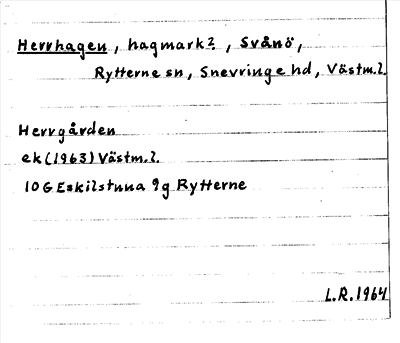 Herrhagen, hagmark?, Svånö,
Rytterne sn, Snevringe hd, Västm.l.
Herrgården
ek (1963) Västm.l.
10G Eskilstuna 9g Rytterne
L.R. 1964